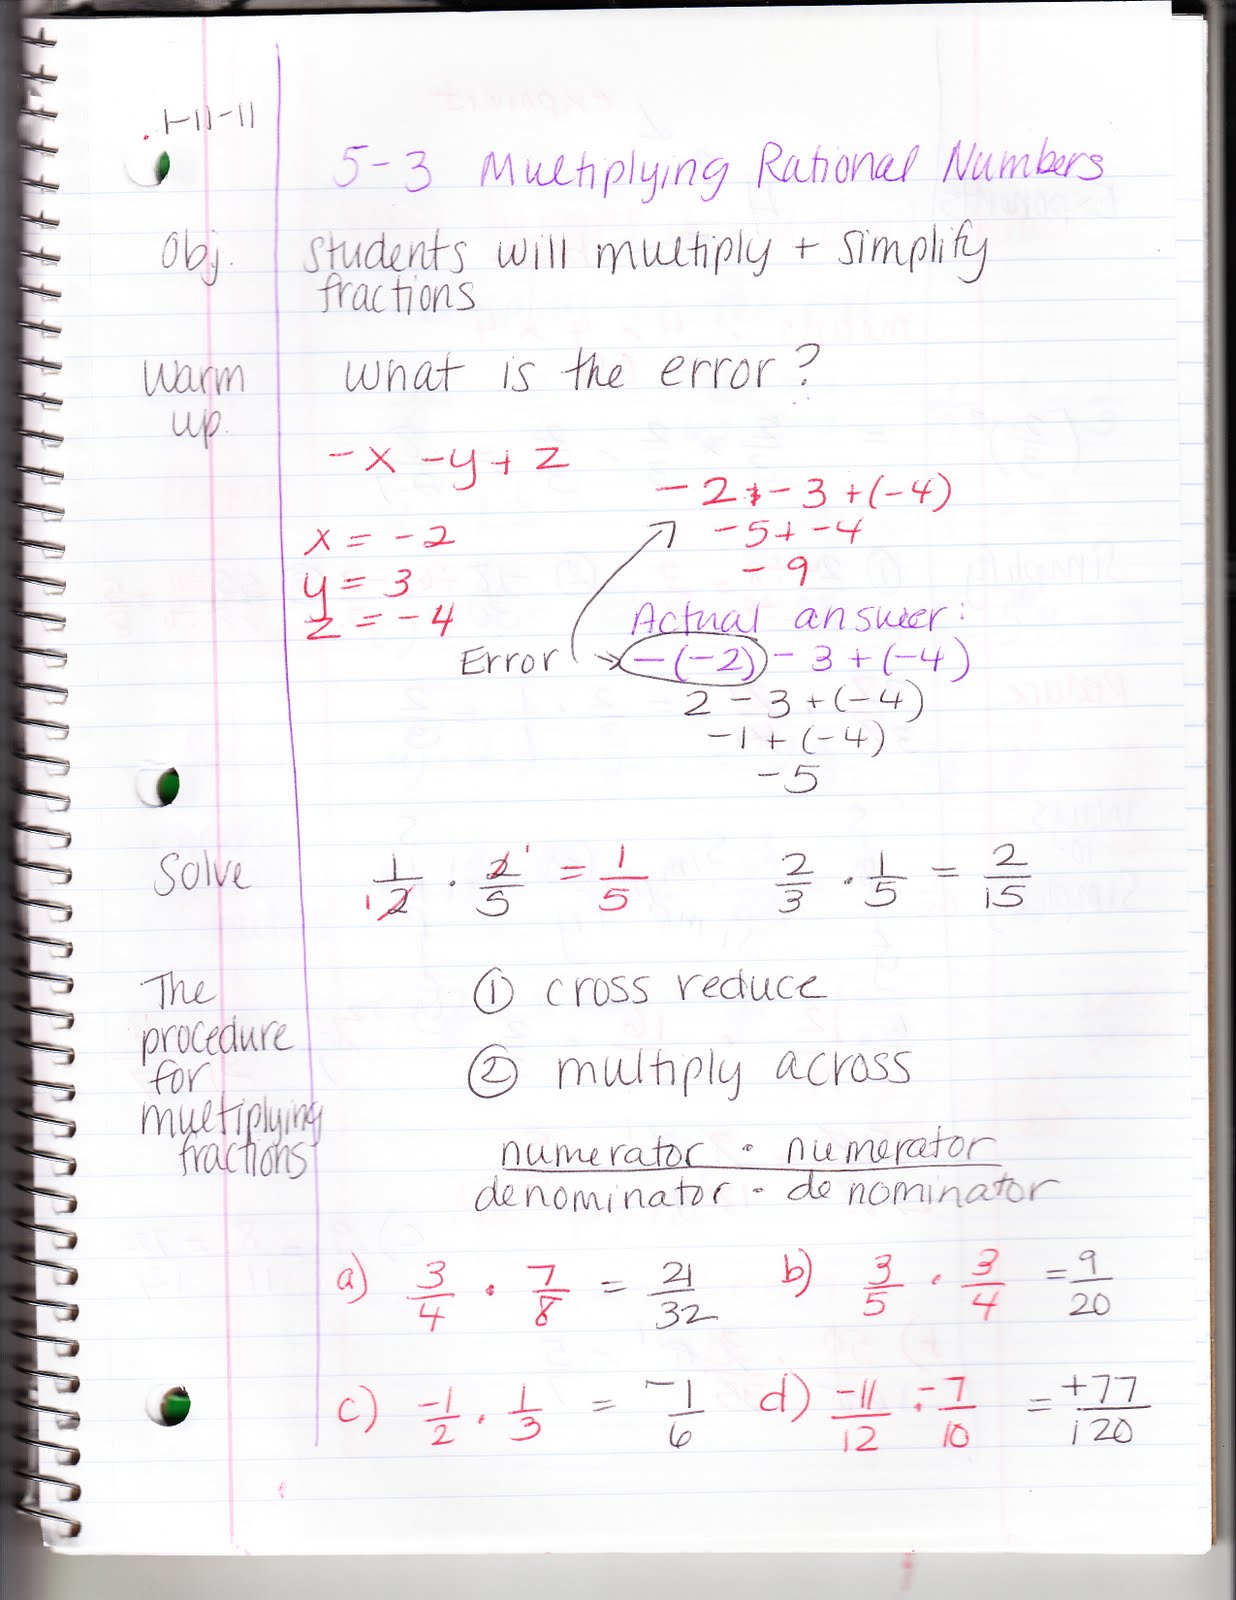 1-11-11
5-3 Multiplying Rational Numbers
Obj. Students will multiply + simplify
fractions
Warm
up.
What is the error?
-x -y + z
x = -2
y = 3
z = -4
-2 + -3 + (-4)
-5 + -4
-9
Actual answer:
Error -(-2) - 3 + (-4)
2 - 3 + (-4)
-1 + (-4)
-5
Solve 1/2 · 2/5 = 1/5 2/3 · 1/5 = 2/15
1 1
The
procedure
for
multiplying
fractions
① cross reduce
② multiply across
numerator · numerator
denominator · denominator
a) 3/4 · 7/8 = 21/32 b) 3/5 · 3/4 = 9/20
c) -1/2 · 1/3 = -1/6 d) -11/12 · -7/10 = +77/120